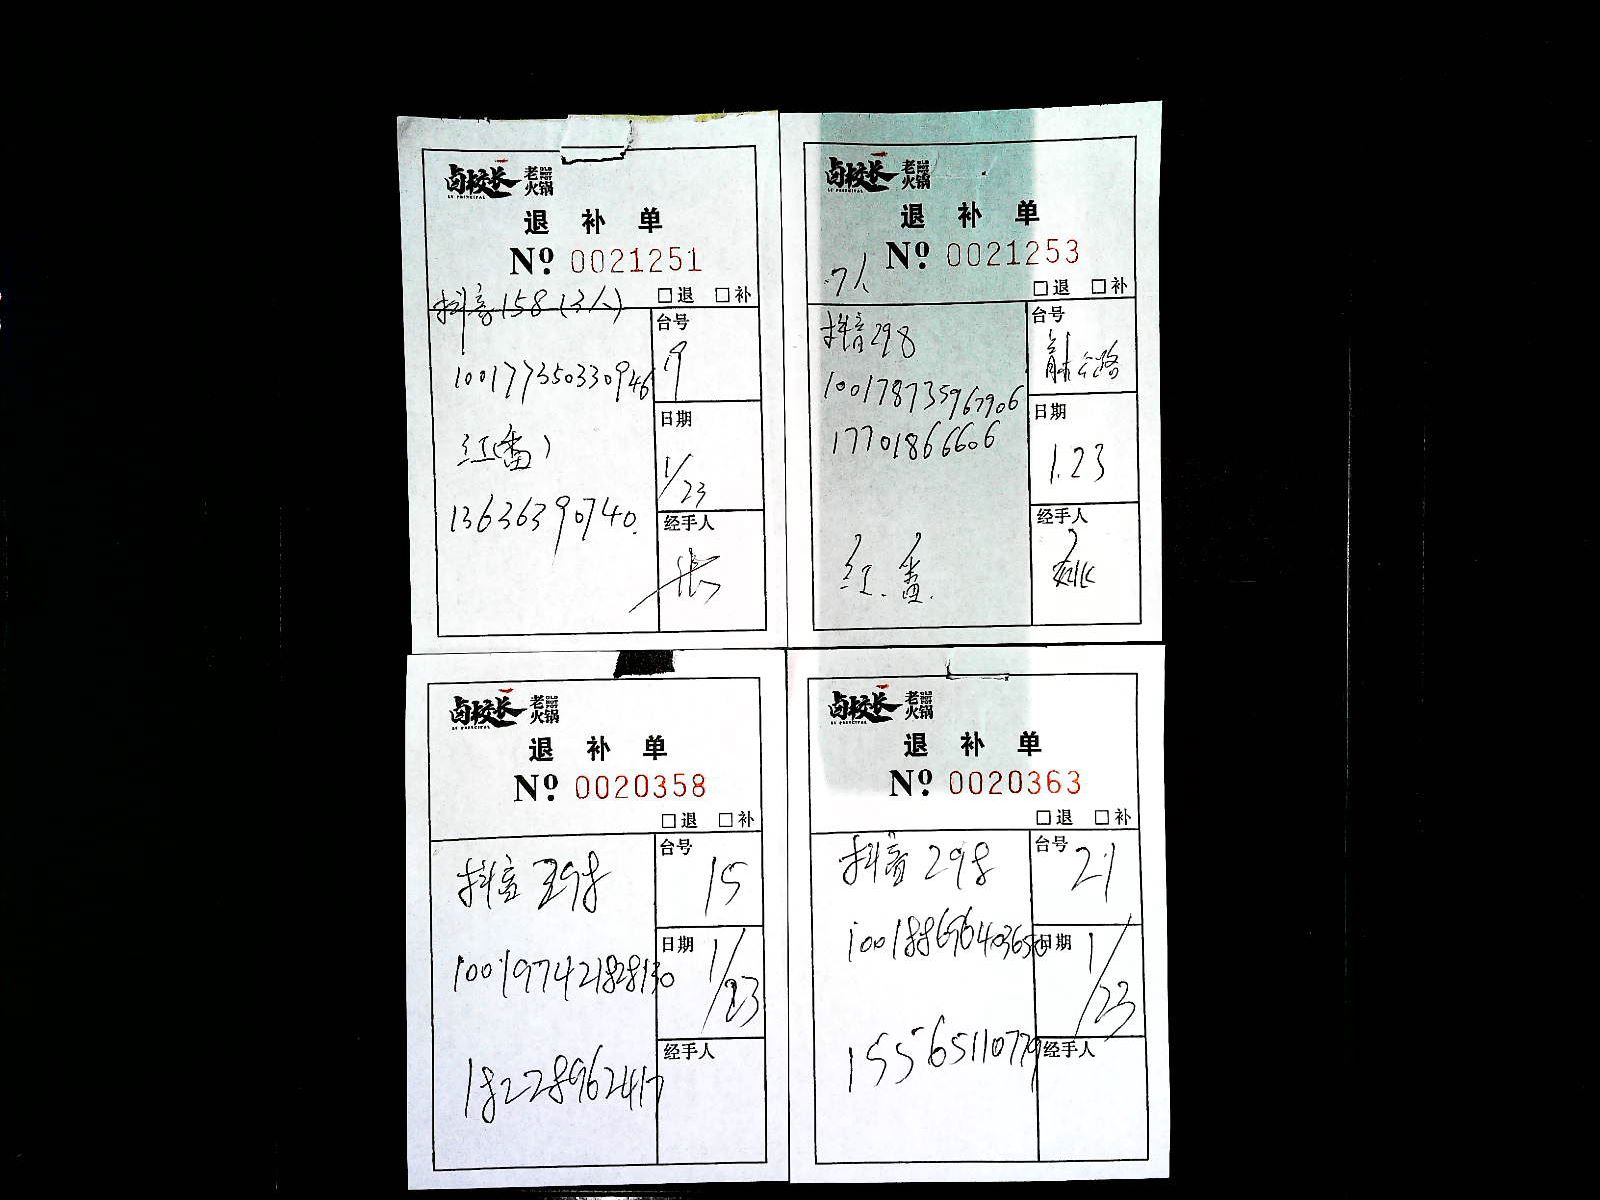 卤校长 老火锅
LU PRINCIPAL
退 补 单
Nº 0021251
□退 □补
抖音158(3人)
台号
19
100177350330946
红(番)
日期
1/23
13636390740.
经手人
张
卤校长 老火锅
退 补 单
Nº 0021253
7人
□退 □补
抖音298
台号
100178735967906
17701866606
日期
1.23
经手人
红.番.
卤校长 老火锅
LU PRINCIPAL
退 补 单
Nº 0020358
□退 □补
抖音 298
台号
15
100197421828130
日期
1/23
18228962417
经手人
卤校长 老火锅
LU PRINCIPAL
退 补 单
Nº 0020363
□退 □补
抖音 298
台号
21
日期
1/23
15565110779
经手人